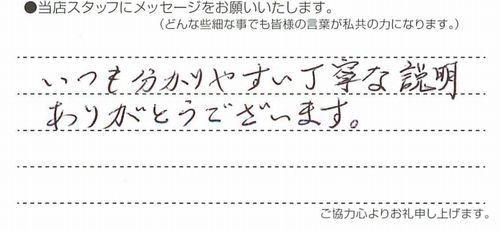 ●当店スタッフにメッセージをお願いいたします。
(どんな些細な事でも皆様の言葉が私共の力になります。)
いつも分かりやすい丁寧な説明
ありがとうございます。
ご協力心よりお礼申し上げます。